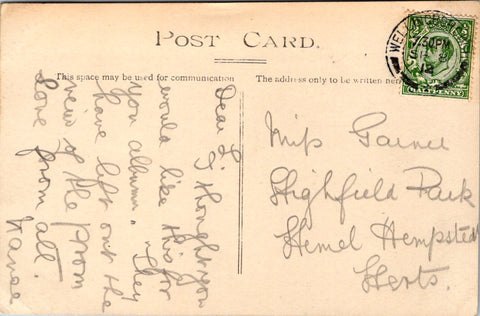 POST CARD.
This space may be used for communication
The address only to be written here
Dear L.
I thought you
would like this for
you album. They
have left out the
view of the Prom
Love from all.
Miss Garner
Highfield Park
Hemel Hempstead
Herts.
7.30PM
14
HALFPENNY